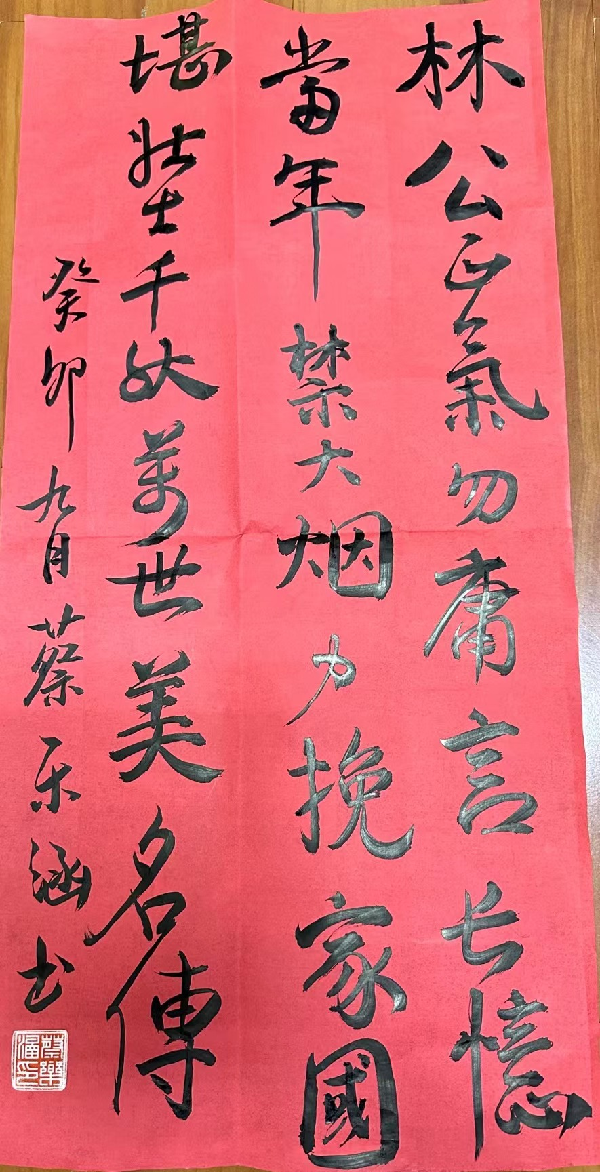 林公正氣勿庸言长憶
當年禁大烟力挽家國
堪壮士千秋萬世美名傳
癸卯九月蔡乐涵书
蔡樂涵印